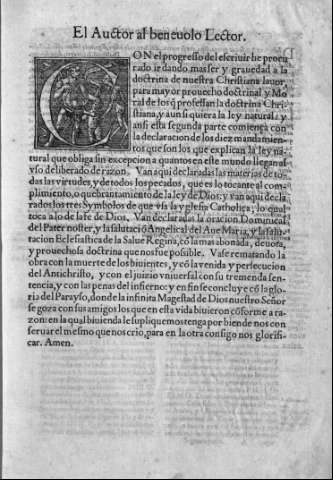 El Auctor al beneuolo Lector.
CON el progresso del escriuir he procu
rado ir dando mas ser y grauedad a la
doctrina de nuestra Christiana lauor,
para mayor prouecho doctrinal y Mo
ral de los q̃ professan la doctrina Chri-
stiana, y aun si quiera la ley natural: y
ansi esta segunda parte comiença con
la declaracion de los diez mandamien
tos que son los que explican la ley na-
tural que obliga sin excepcion a quantos en este mundo llegan al
vso deliberado de razon. Van aqui declaradas las materias de to-
das las virtudes, y de todos los pecados, que es lo tocante al com-
plimiento, o quebrantamiento de la ley de Dios: y van aqui decla
rados los tres Symbolos de que vsa la yglesia Catholica, lo qual
toca a lo de la fe de Dios. Van declaradas la oracion Dominical
del Pater noster, y la salutaciõ Angelical del Aue Maria, y la salu-
tacion Eclesiastica de la Salue Regina, cõ la mas abonada, deuota,
y prouechosa doctrina que nos fue posible. Vase rematando la
obra con la muerte de los biuientes, y cõ la venida y persecucion
del Antichristo, y con el juizio vniuersal con su tremenda sen-
tencia, y con las penas del infierno: y en fin se concluye cõ la glo-
ria del Parayso, donde la infinita Magestad de Dios nuestro Señor
se goza con sus amigos los que en esta vida biuieron cõforme a ra-
zon: en la qual biuienda le supliquemos tenga por bien de nos con
seruar el mesmo que nos crio, para en la otra consigo nos glorifi-
car. Amen.